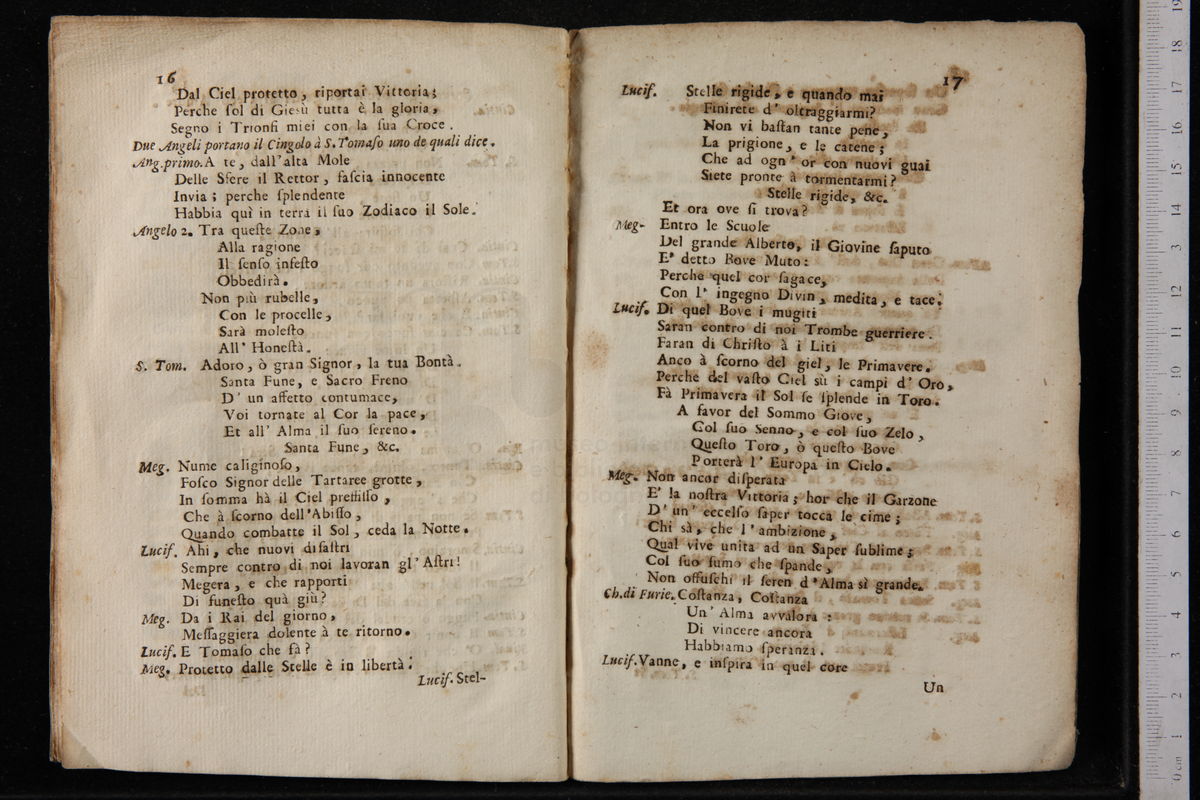 16
Dal Ciel protetto, riportai Vittoria;
Perche ſol di Giesù tutta è la gloria,
Segno i Trionfi miei con la ſua Croce.
Due Angeli portano il Cingolo à S. Tomaſo uno de quali dice.
Ang.primo. A te, dall'alta Mole
Delle Sfere il Rettor, faſcia innocente
Invia; perche ſplendente
Habbia quì in terra il ſuo Zodiaco il Sole.
Angelo 2. Tra queſte Zone,
Alla ragione
Il ſenſo infeſto
Obbedirà.
Non più rubelle,
Con le procelle,
Sarà moleſto
All' Honeſtà.
S. Tom. Adoro, ò gran Signor, la tua Bontà.
Santa Fune, e Sacro Freno
D' un affetto contumace,
Voi tornate al Cor la pace,
Et all' Alma il ſuo ſereno.
Santa Fune, &c.
Meg. Nume caliginoſo,
Foſco Signor delle Tartaree grotte,
In ſomma hà il Ciel preffiſſo,
Che à ſcorno dell'Abiſſo,
Quando combatte il Sol, ceda la Notte.
Lucif. Ahi, che nuovi diſaſtri
Sempre contro di noi lavoran gl' Aſtri!
Megera, e che rapporti
Di funeſto quà giù?
Meg. Da i Rai del giorno,
Meſſaggiera dolente à te ritorno.
Lucif. E Tomaſo che fà?
Meg. Protetto dalle Stelle è in libertà.
Lucif. Stel-
17
Lucif. Stelle rigide, e quando mai
Finirete d' oltraggiarmi?
Non vi baſtan tante pene,
La prigione, e le catene;
Che ad ogn' or con nuovi guai
Siete pronte à tormentarmi?
Stelle rigide, &c.
Et ora ove ſi trova?
Meg- Entro le Scuole
Del grande Alberto, il Giovine ſaputo
E' detto Bove Muto:
Perche quel cor ſagace,
Con l' ingegno Divin, medita, e tace.
Lucif. Di quel Bove i mugiti
Saran contro di noi Trombe guerriere.
Faran di Chriſto à i Liti
Anco à ſcorno del giel, le Primavere.
Perche del vaſto Ciel sù i campi d' Oro,
Fà Primavera il Sol ſe ſplende in Toro.
A favor del Sommo Giove,
Col ſuo Senno, e col ſuo Zelo,
Queſto Toro, ò queſto Bove
Porterà l' Europa in Cielo.
Meg. Non ancor diſperata
E' la noſtra Vittoria; hor che il Garzone
D' un' eccelſo ſaper tocca le cime;
Chi sà, che l' ambizione,
Qual vive unita ad un Saper ſublime;
Col ſuo fumo che ſpande,
Non offuſchi il ſeren d'Alma sì grande.
Ch.di Furie. Coſtanza, Coſtanza
Un' Alma avvalora:
Di vincere ancora
Habbiamo ſperanza.
Lucif. Vanne, e inſpira in quel core
Un